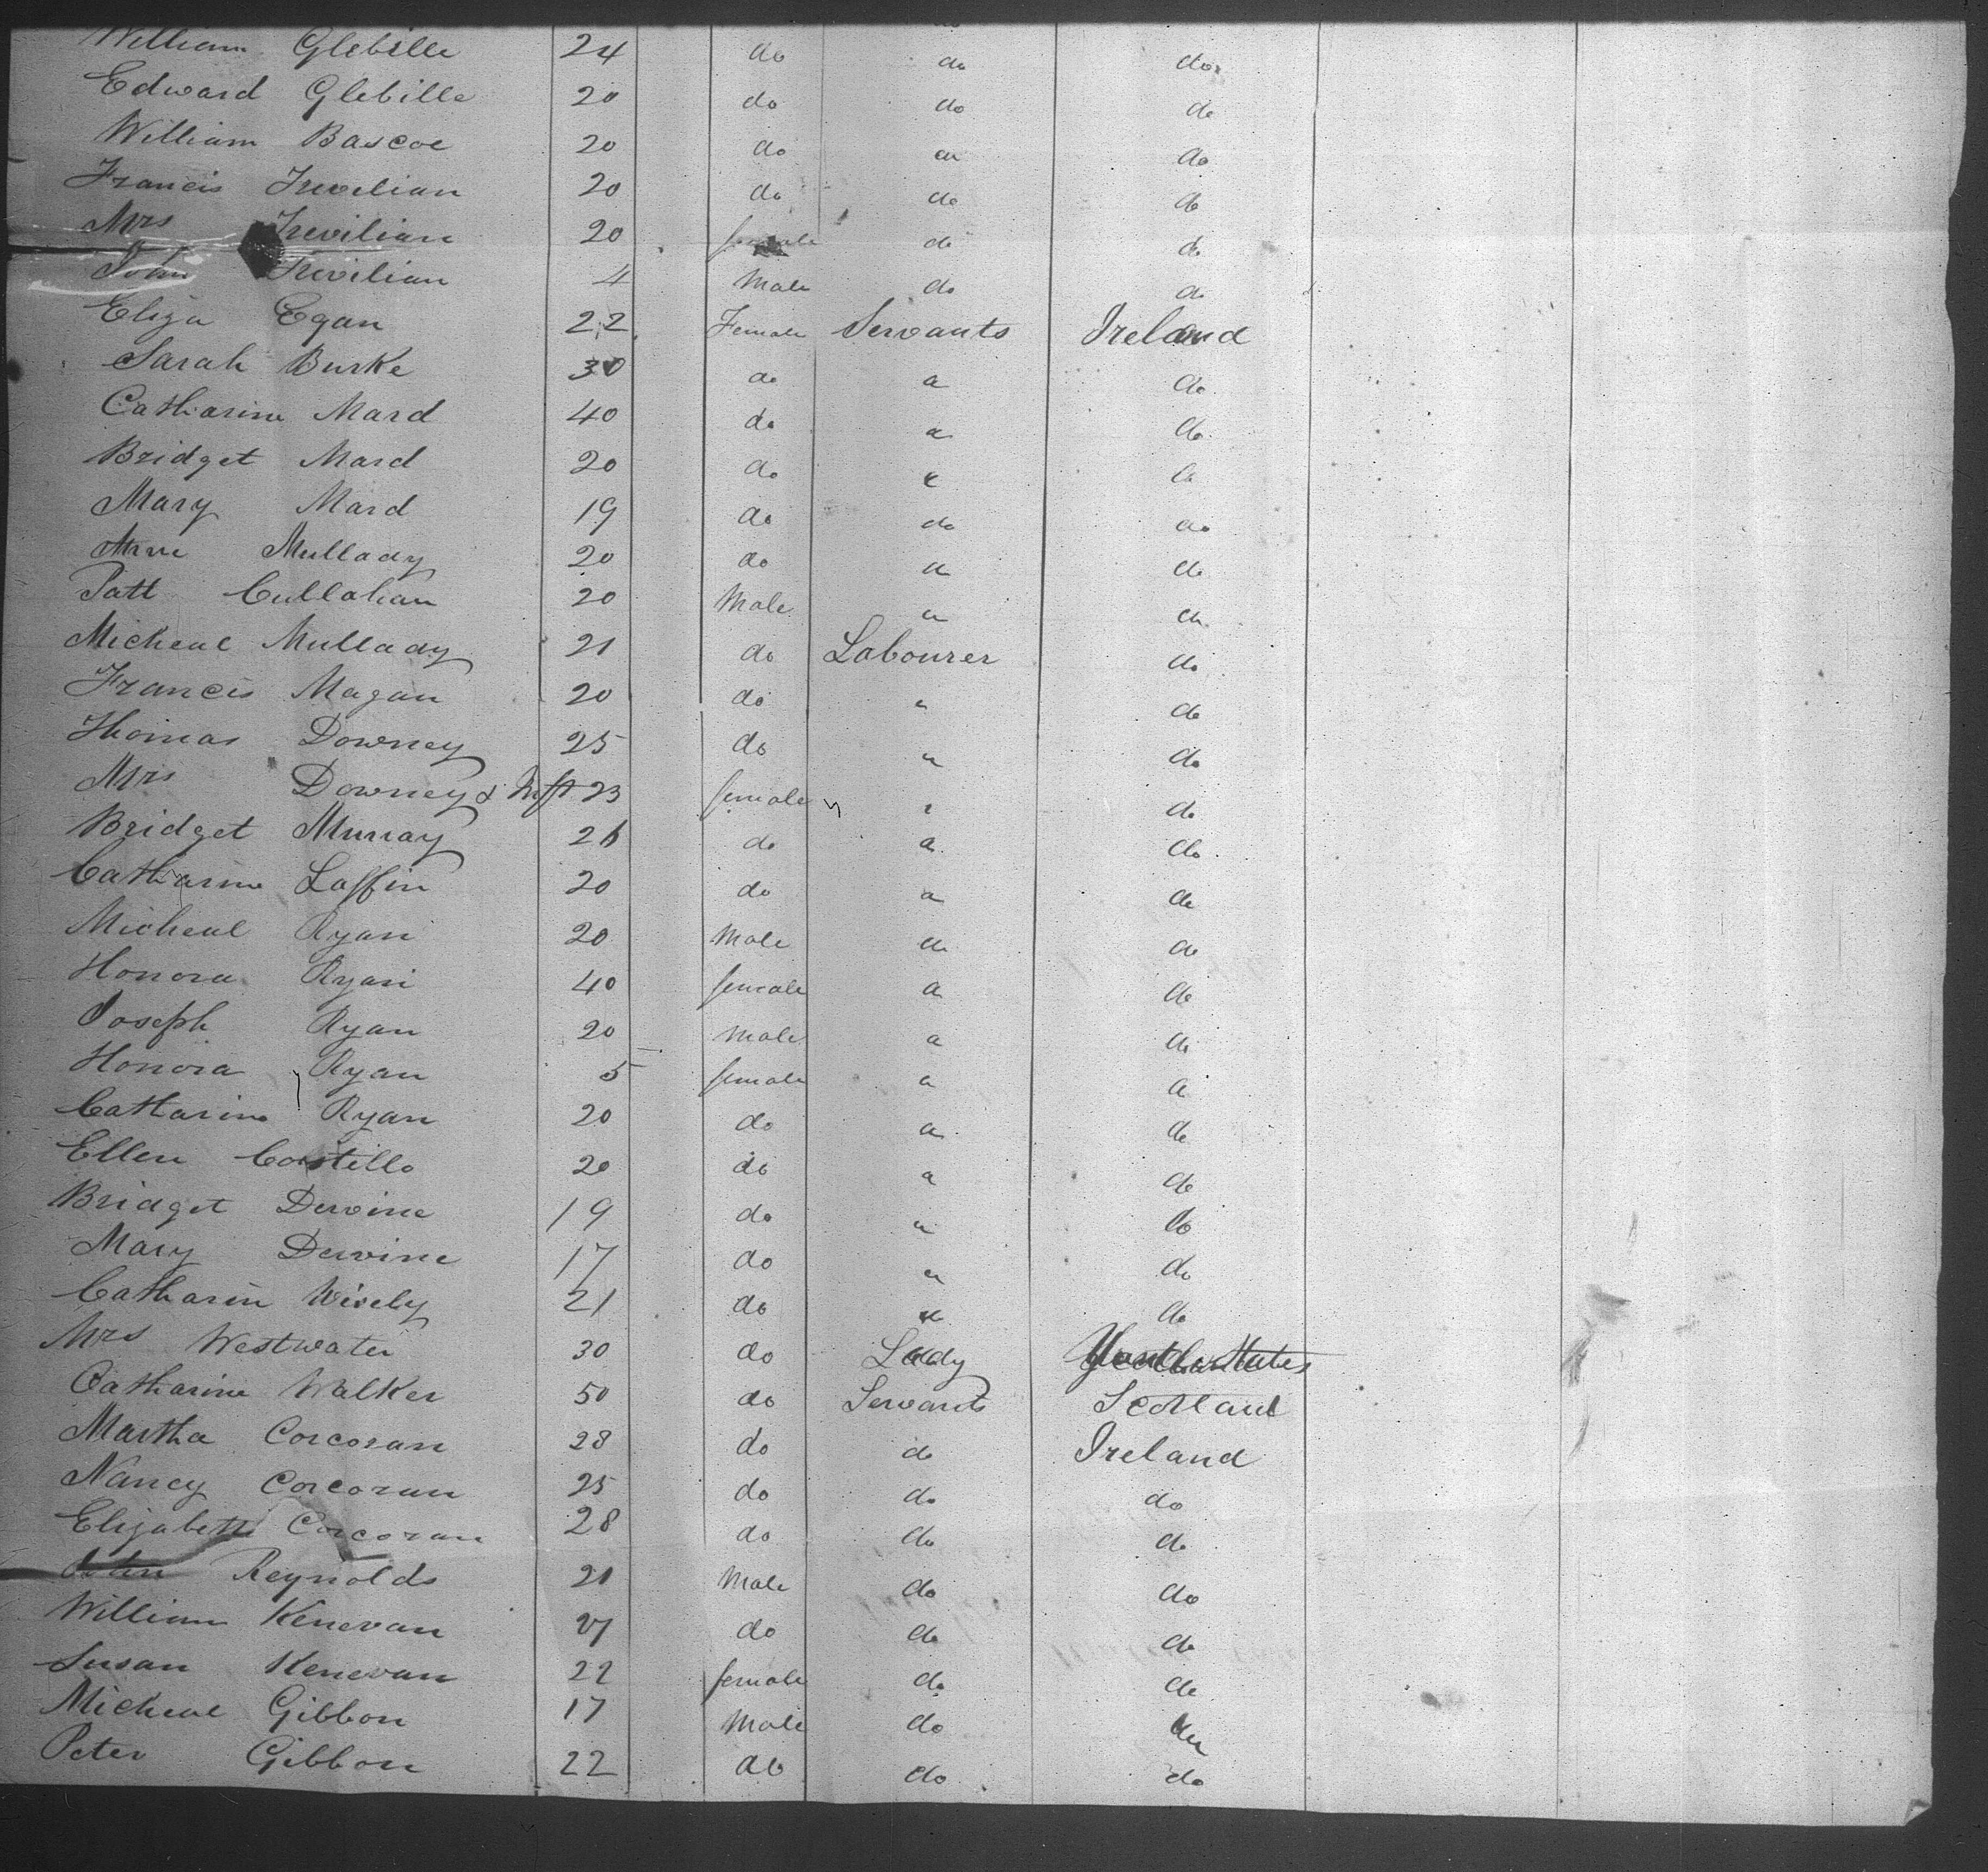 William Glebille 24 do do do
Edward Glebille 20 do do do
William Bascoe 20 do do do
Francis Trevilian 20 do do do
Mrs Trevilian 20 female do do
John Trevilian 4 Male do do
Eliza Egan 22 Female Servants Ireland
Sarah Burke 30 do do do
Catharine Mard 40 do do do
Bridget Mard 20 do do do
Mary Mard 19 do do do
Ann Mullady 20 do do do
Patt Cullahan 20 Male do do
Micheal Mullady 21 do Labourer do
Francis Magan 20 do " do
Thomas Downey 25 do " do
Mrs Downey & Inft 23 female " do
Bridget Murray 26 do do do
Catharine Laffin 20 do do do
Micheal Ryan 20 Male do do
Honora Ryan 40 female do do
Joseph Ryan 20 Male do do
Honora Ryan 5 female do do
Catharine Ryan 20 do do do
Ellen Costillo 20 do do do
Bridget Dervine 19 do do do
Mary Dervine 17 do do do
Catharin Wisely 21 do do do
Mrs Westwater 30 do Lady
Catharine Walker 50 do Servants Scotland
Martha Corcoran 28 do do Ireland
Nancy Corcoran 25 do do do
Elizabeth Corcoran 28 do do do
John Reynolds 21 Male do do
William Kenevan 27 do do do
Susan Kenevan 22 female do do
Micheal Gibbon 17 Male do do
Peter Gibbon 22 do do do